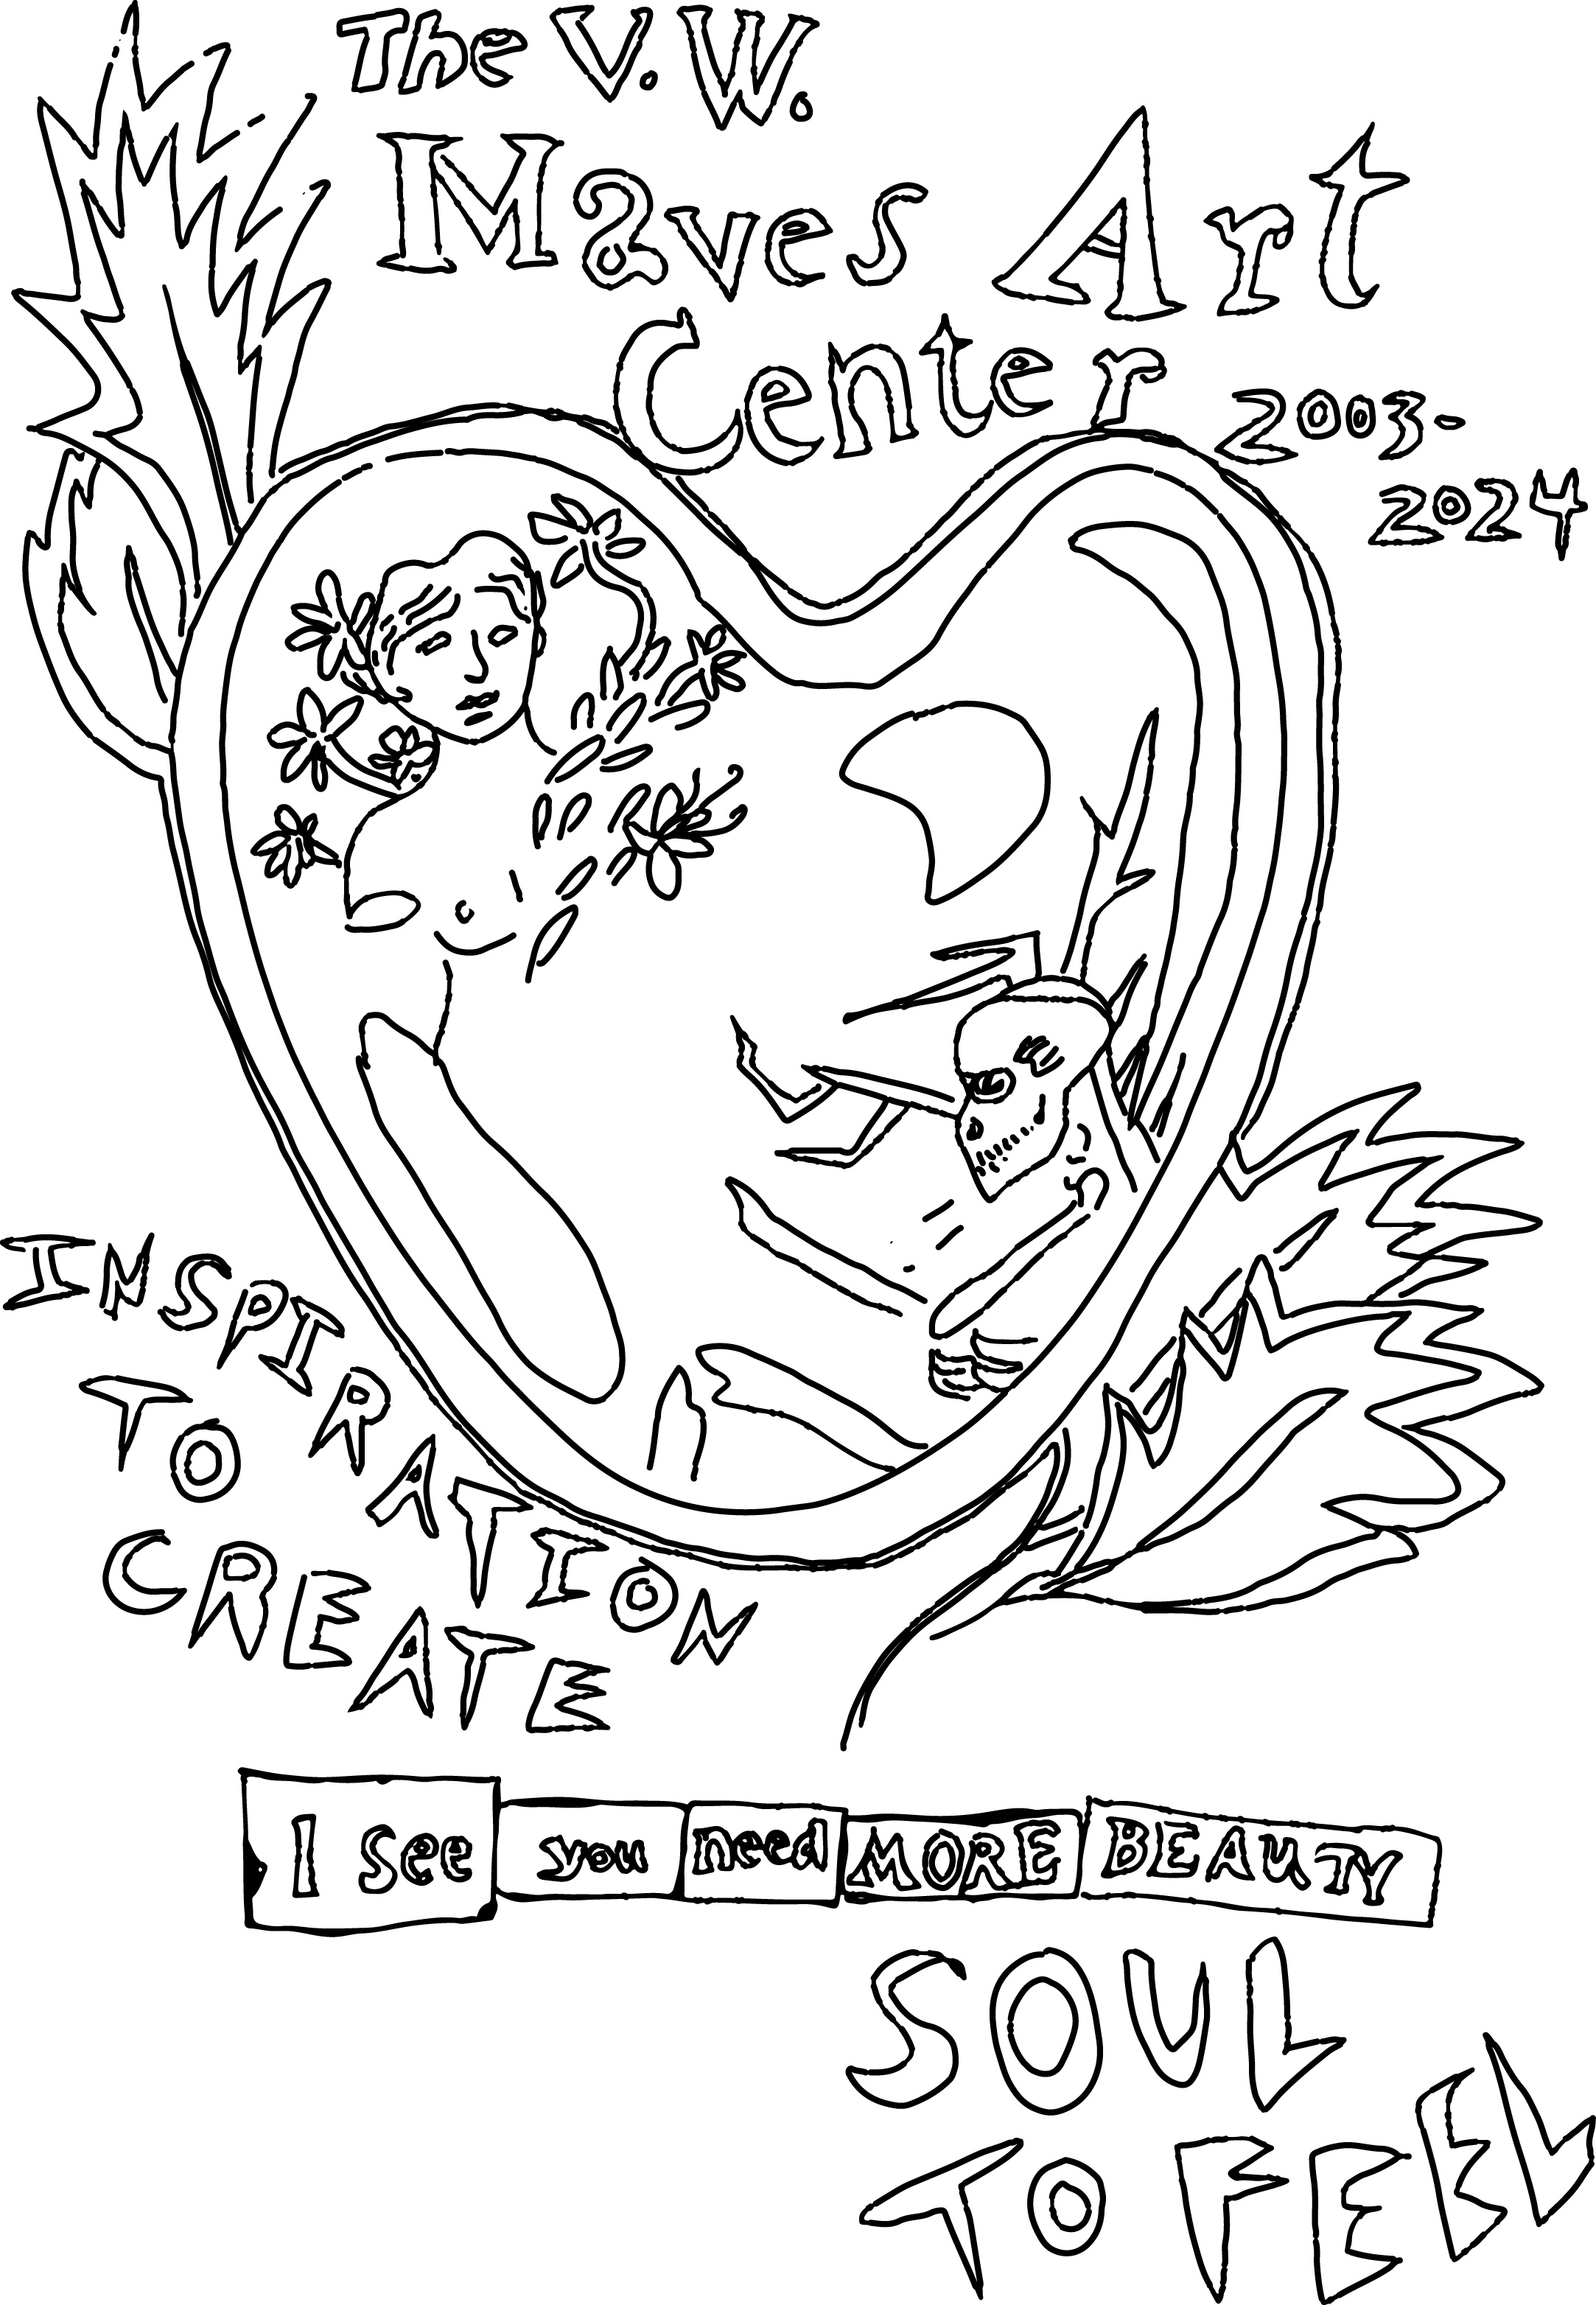 The V.W.
Maves Art
Center 2003-
2024
INSPIRATION
TO
CREATE
I see you need MORE BEAUTY
SOUL
TO FEEL